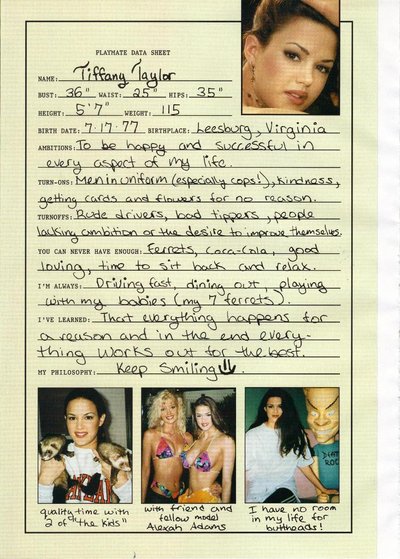 PLAYMATE DATA SHEET
NAME: Tiffany Taylor
BUST: 36" WAIST: 25" HIPS: 35"
HEIGHT: 5'7" WEIGHT: 115
BIRTH DATE: 7·17·77 BIRTHPLACE: Leesburg, Virginia
AMBITIONS: To be happy and successful in
every aspect of my life.
TURN-ONS: Men in uniform (especially cops!), kindness,
getting cards and flowers for no reason.
TURNOFFS: Rude drivers, bad tippers, people
lacking ambition or the desire to improve themselves.
YOU CAN NEVER HAVE ENOUGH: Ferrets, Coca-Cola, good
loving, time to sit back and relax.
I'M ALWAYS: Driving fast, dining out, playing
with my babies (my 7 ferrets).
I'VE LEARNED: That everything happens for
a reason and in the end every-
thing works out for the best.
MY PHILOSOPHY: Keep Smiling
quality time with
2 of "the kids"
with friend and
fellow model
Alexah Adams
I have no room
in my life for
buttheads!